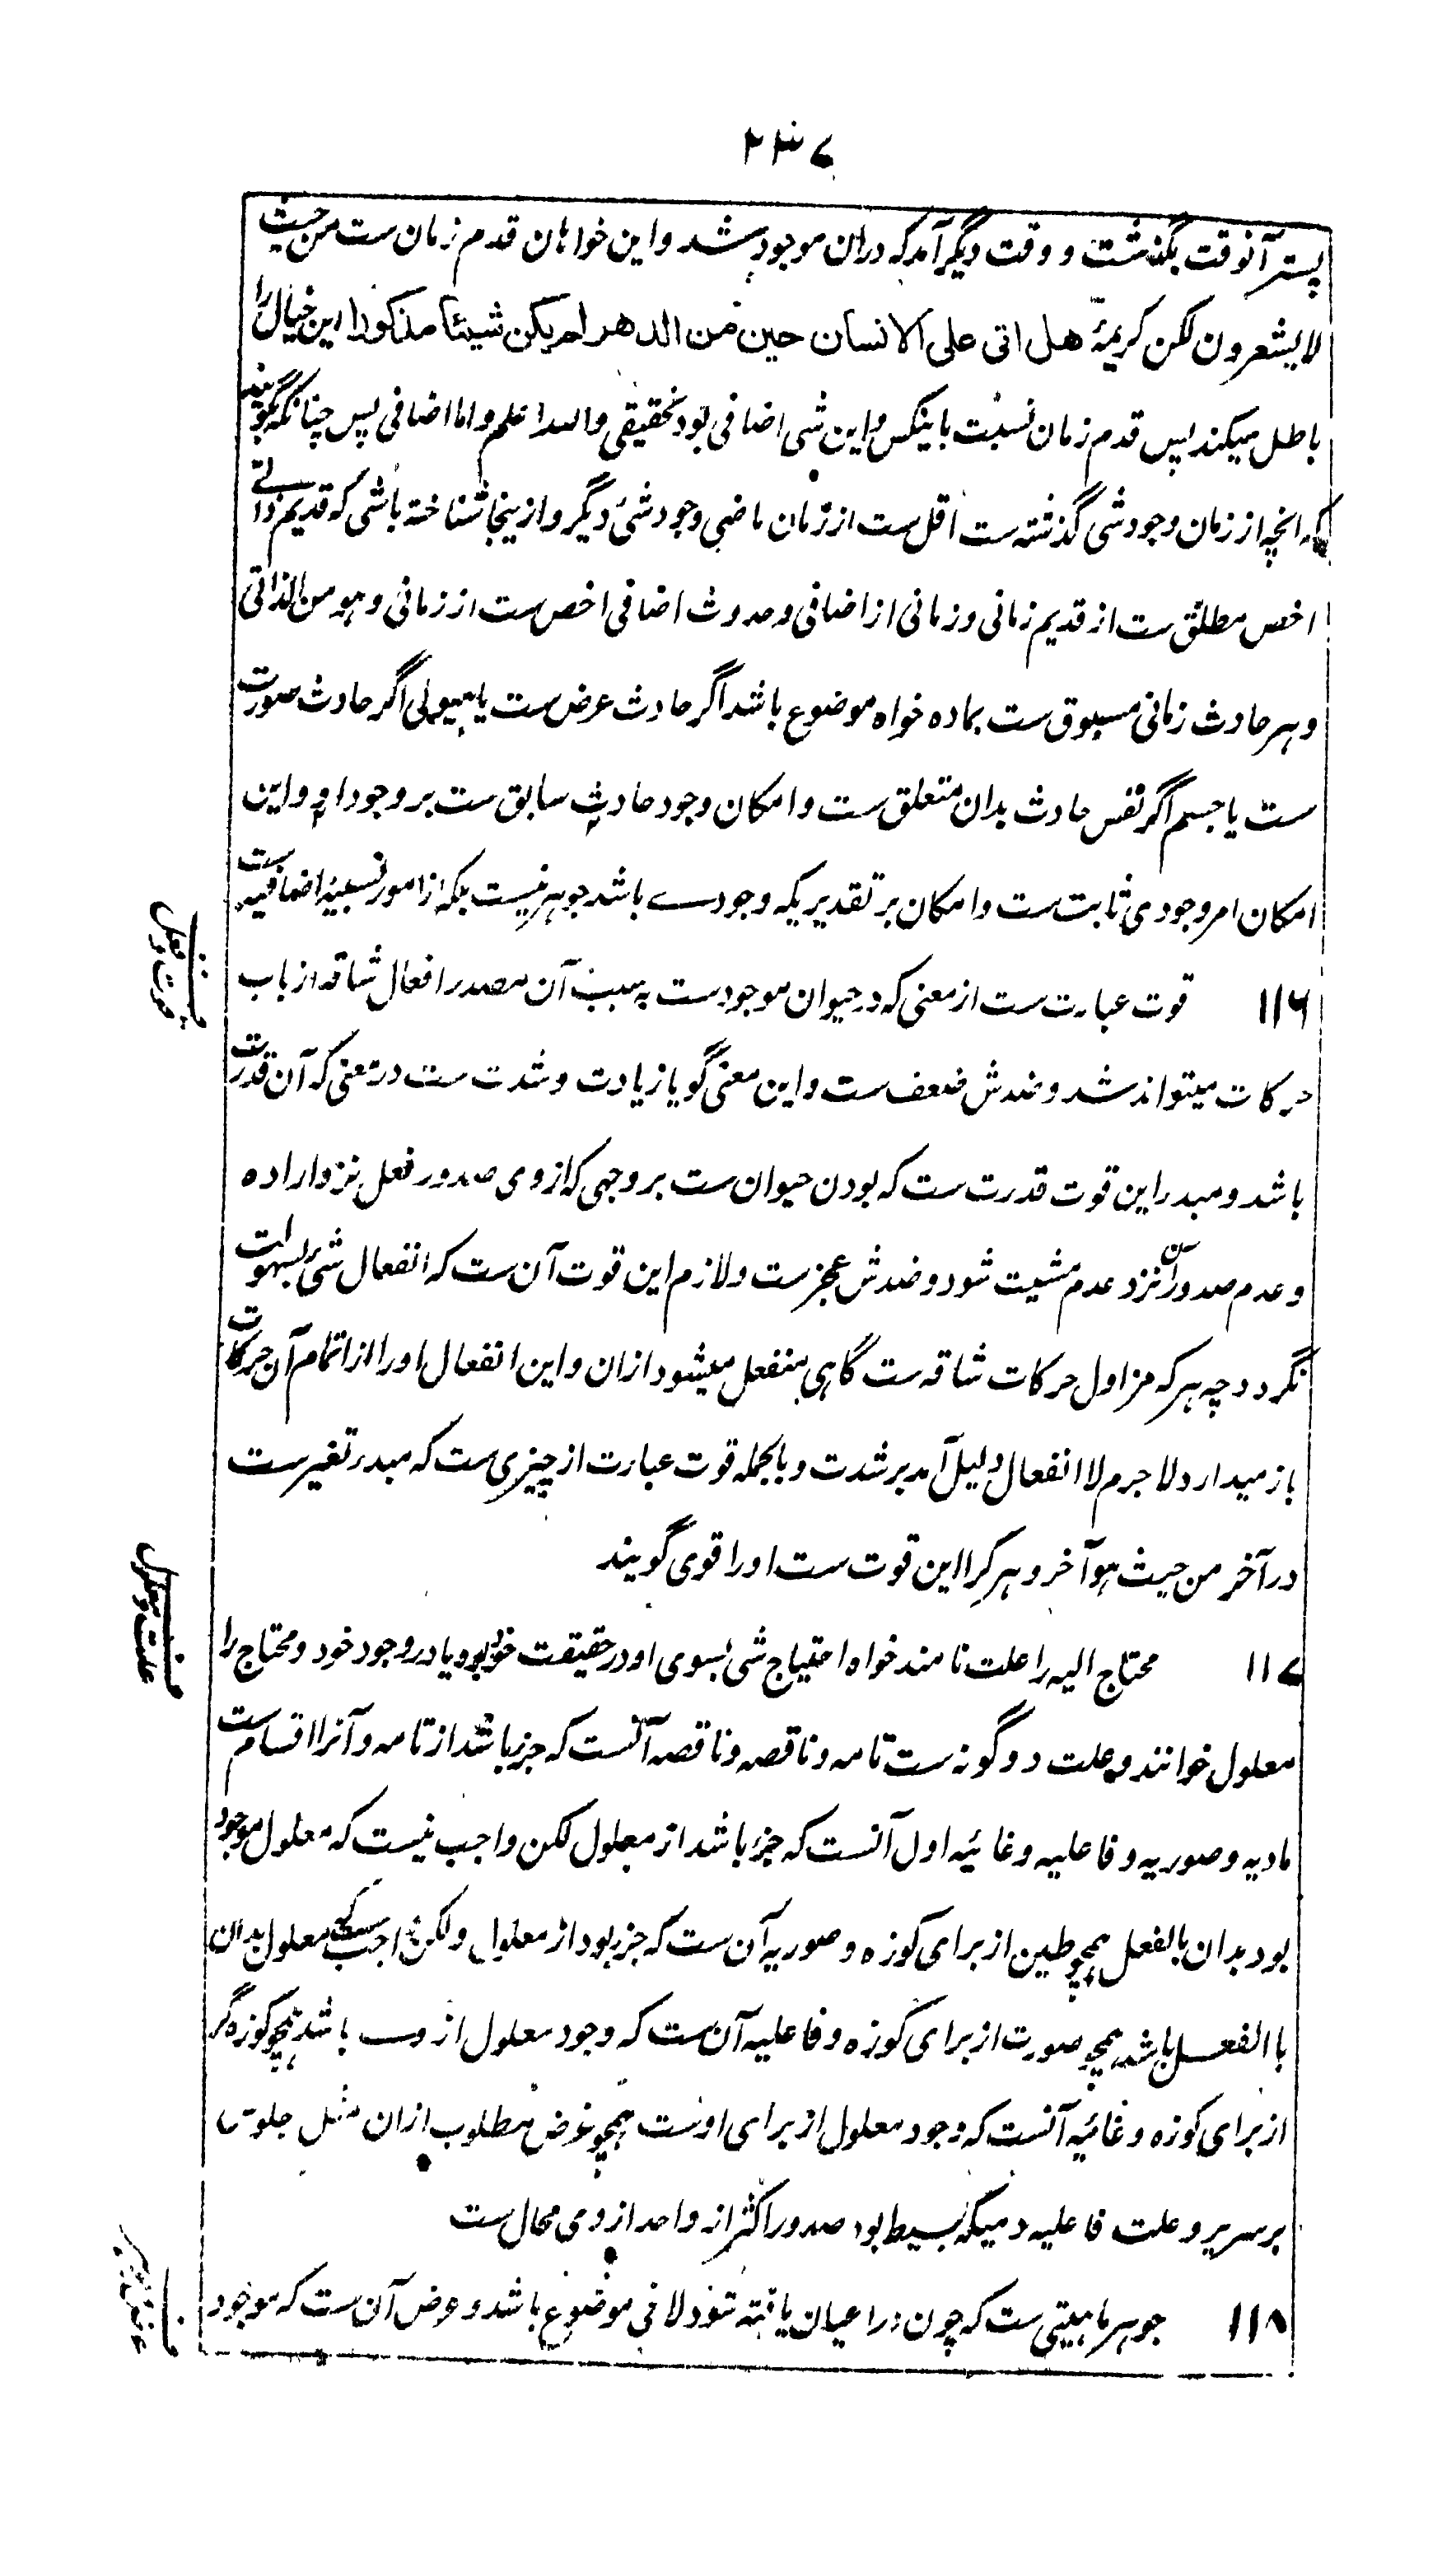 ۲۳۷
پستر آنوقت بگذشت و وقت دیگر آمد که دران موجود شد و این خواهان قدم زمان ست من حیث
لا یشعرون لکن کریمهٔ هل اتی علی الانسان حین من الدهر لم یکن شیئا مذکورا این خیال را
باطل میکند پس قدم زمان نسبت باینکس و این شی اضافی بود نحقیقی والله اعلم و اما اضافی پس چنانکه گویند
که انچه از زمان وجود شی گذشته ست اقل ست از زمان ماضی وجود شئ دیگر و از ینجا شناخته باشی که قدیم ذاتے
اخص مطلق ست از قدیم زمانی و زمانی از اضافی و حدوث اضافی اخص ست از زمانی و هو من الذاتی
و هر حادث زمانی مسبوق ست بماده خواه موضوع باشد اگر حادث عرض ست یا هیولی اگر حادث صورت
ست یا جسم اگر نفس حادث بدان متعلق ست و امکان وجود حادث سابق ست بر وجود او و این
امکان امر وجودی ثابت ست و امکان بر تقدیریکه وجودے باشد جوهر نیست بلکه از امور نسبیهٔ اضافیه ست
۱۱۶ قوت عبارت ست از معنی که در حیوان موجودست بسبب آن مصدر افعال شاقه از باب
قوت و فعل
حرکات میتواند شد و ضدش ضعف ست و این معنی گویا زیادت و شدت ست در معنی که آن قدرت
باشد و مبدر این قوت قدرت ست که بودن حیوان ست بر وجهی که از وی صدور فعل نزد اراده
و عدم صدور آن نزد عدم مشیت شود و ضدش عجز ست و لازم این قوت آن ست که انفعال شئ بسهولت
نگردد چه هر که مزاول حرکات شاقه ست گاهی منفعل میشود ازان و این انفعال او را از اتمام آن حرکات
باز میدارد لا جرم لا انفعال دلیل آمد بر شدت و بالجمله قوت عبارت از چیزی ست که مبدر تغیر ست
در آخر من حیث هو آخر و هر کرا این قوت ست او را قوی گویند
۱۱۷ محتاج الیه را علت نامند خواه احتیاج شی بسوی او در حقیقت خود بود یا در وجود خود و محتاج را
علت و معلول
معلول خوانند و علت دو گونه ست تامه و ناقصه و ناقصه آنست که جزر باشد از تامه و آنرا اقسام ست
مادیه و صوریه و فاعلیه و غائیه اول آنست که جزؤ باشد از معلول لکن واجب نیست که معلول موجود
بود بدان بالفعل همچو طین از برای کوزه و صوریه آن ست که جزر بود از معلول و لکن واجب ست که معلول بدان
باالفعل باشد همچو صورت از برای کوزه و فاعلیه آن ست که وجود معلول از وے باشد همچو کوزه گر
از برای کوزه و غائیه آنست که وجود معلول از برای اوست همچو غرض مطلوب ازان مثل جلوس
بر سریر و علت فاعلیه دمیکه بسیط بود صدور اکثر از واحد از وی محال ست
۱۱۸ جوهر ماهیتی ست که چون در اعیان یافته شود لا فی موضوع باشد و عرض آن ست که موجود